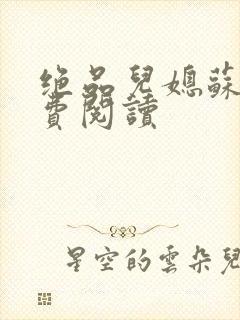 绝品兒媳蘇
費閱讀
星空的雲朵兒